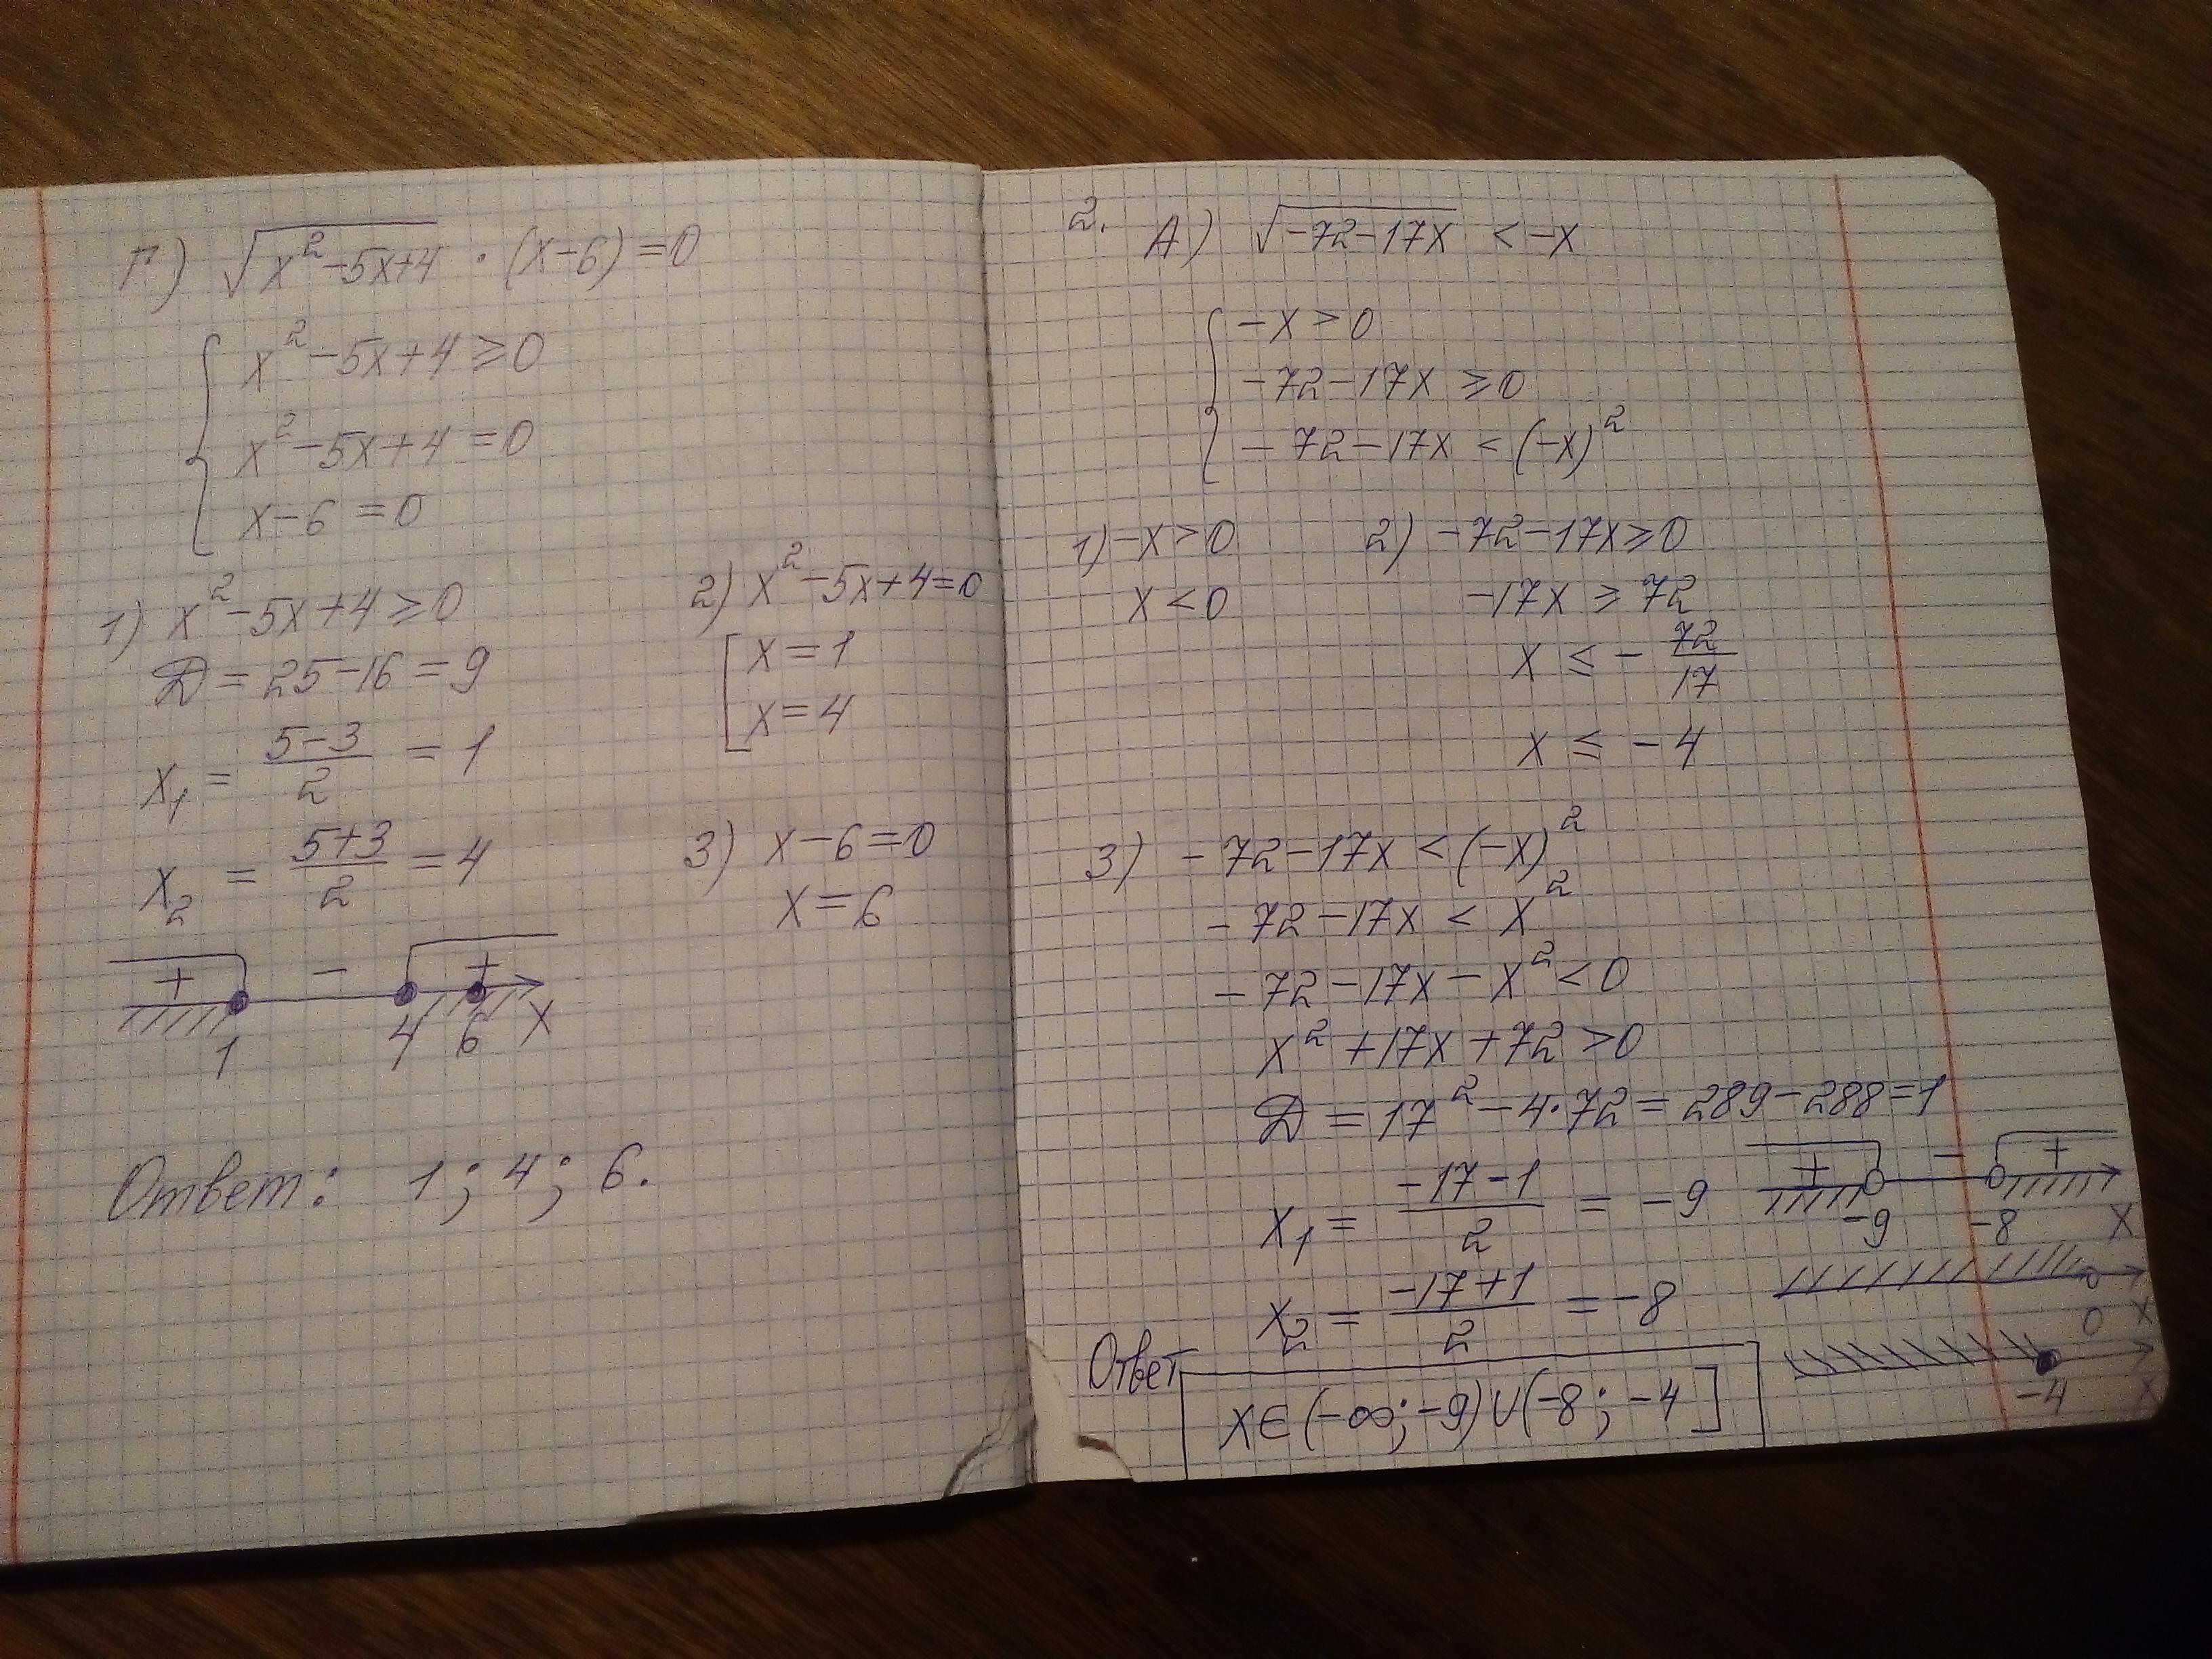 Г) √(x²-5x+4) · (x-6) = 0
{ x²-5x+4 ≥ 0
x²-5x+4 = 0
x-6 = 0
1) x²-5x+4 ≥ 0
Д = 25-16 = 9
x₁ = (5-3)/2 = 1
x₂ = (5+3)/2 = 4
+ - +
1 4 6 x
2) x²-5x+4=0
[ x=1
x=4
3) x-6=0
x=6
Ответ: 1; 4; 6.
2. А) √(-72-17x) < -x
{ -x > 0
-72-17x ≥ 0
-72-17x < (-x)²
1) -x > 0
x < 0
2) -72-17x ≥ 0
-17x ≥ 72
x ≤ - 72/17
x ≤ -4
3) -72-17x < (-x)²
-72-17x < x²
-72-17x-x² < 0
x²+17x+72 > 0
Д = 17²-4·72 = 289-288 = 1
x₁ = (-17-1)/2 = -9
x₂ = (-17+1)/2 = -8
+ - +
-9 -8 x
0 x
-4 x
Ответ x∈(-∞; -9)∪(-8; -4]